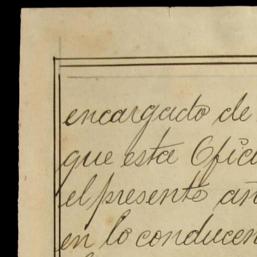 encargado de
que esta Ofici
el presente añ
en lo conducen